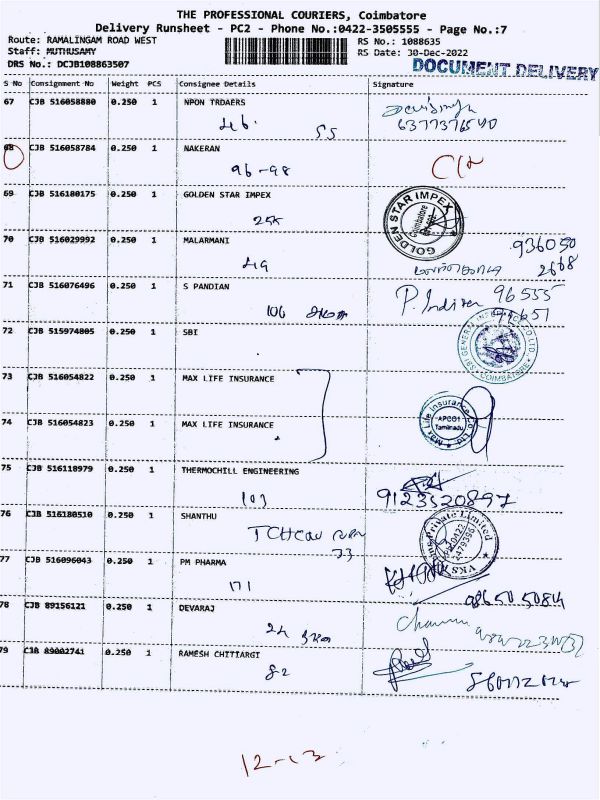 THE PROFESSIONAL COURIERS, Coimbatore
Delivery Runsheet - PC2 - Phone No.:0422-3505555 - Page No.:7
Route: RAMALINGAM ROAD WEST RS No.: 1088635
Staff: MUTHUSAMY RS Date: 30-Dec-2022
DRS No.: DCJB108863507 DOCUMENT DELIVERY
S No Consignment No Weight PCS Consignee Details Signature
67 CJB 516058880 0.250 1 NPON TRDAERS
46. SS
68 CJB 516058784 0.250 1 NAKERAN
96-98
69 CJB 516180175 0.250 1 GOLDEN STAR IMPEX
GOLDEN STAR IMPEX
Coimbatore
70 CJB 516029992 0.250 1 MALARMANI
49
936050
2668
71 CJB 516076496 0.250 1 S PANDIAN
106
96555
72 CJB 515974805 0.250 1 SBI
SBI GENERAL INSURANCE CO LTD.
COIMBATORE
73 CJB 516054822 0.250 1 MAX LIFE INSURANCE
74 CJB 516054823 0.250 1 MAX LIFE INSURANCE
Max Life Insurance Co Ltd
Tamilnadu
75 CJB 516118979 0.250 1 THERMOCHILL ENGINEERING
103
9123520897
76 CJB 516180510 0.250 1 SHANTHU
33
Private Limited
VKS
77 CJB 516096043 0.250 1 PM PHARMA
171
98650 50814
78 CJB 89156121 0.250 1 DEVARAJ
24
79 CJB 89002741 0.250 1 RAMESH CHITTIARGI
82
12-13